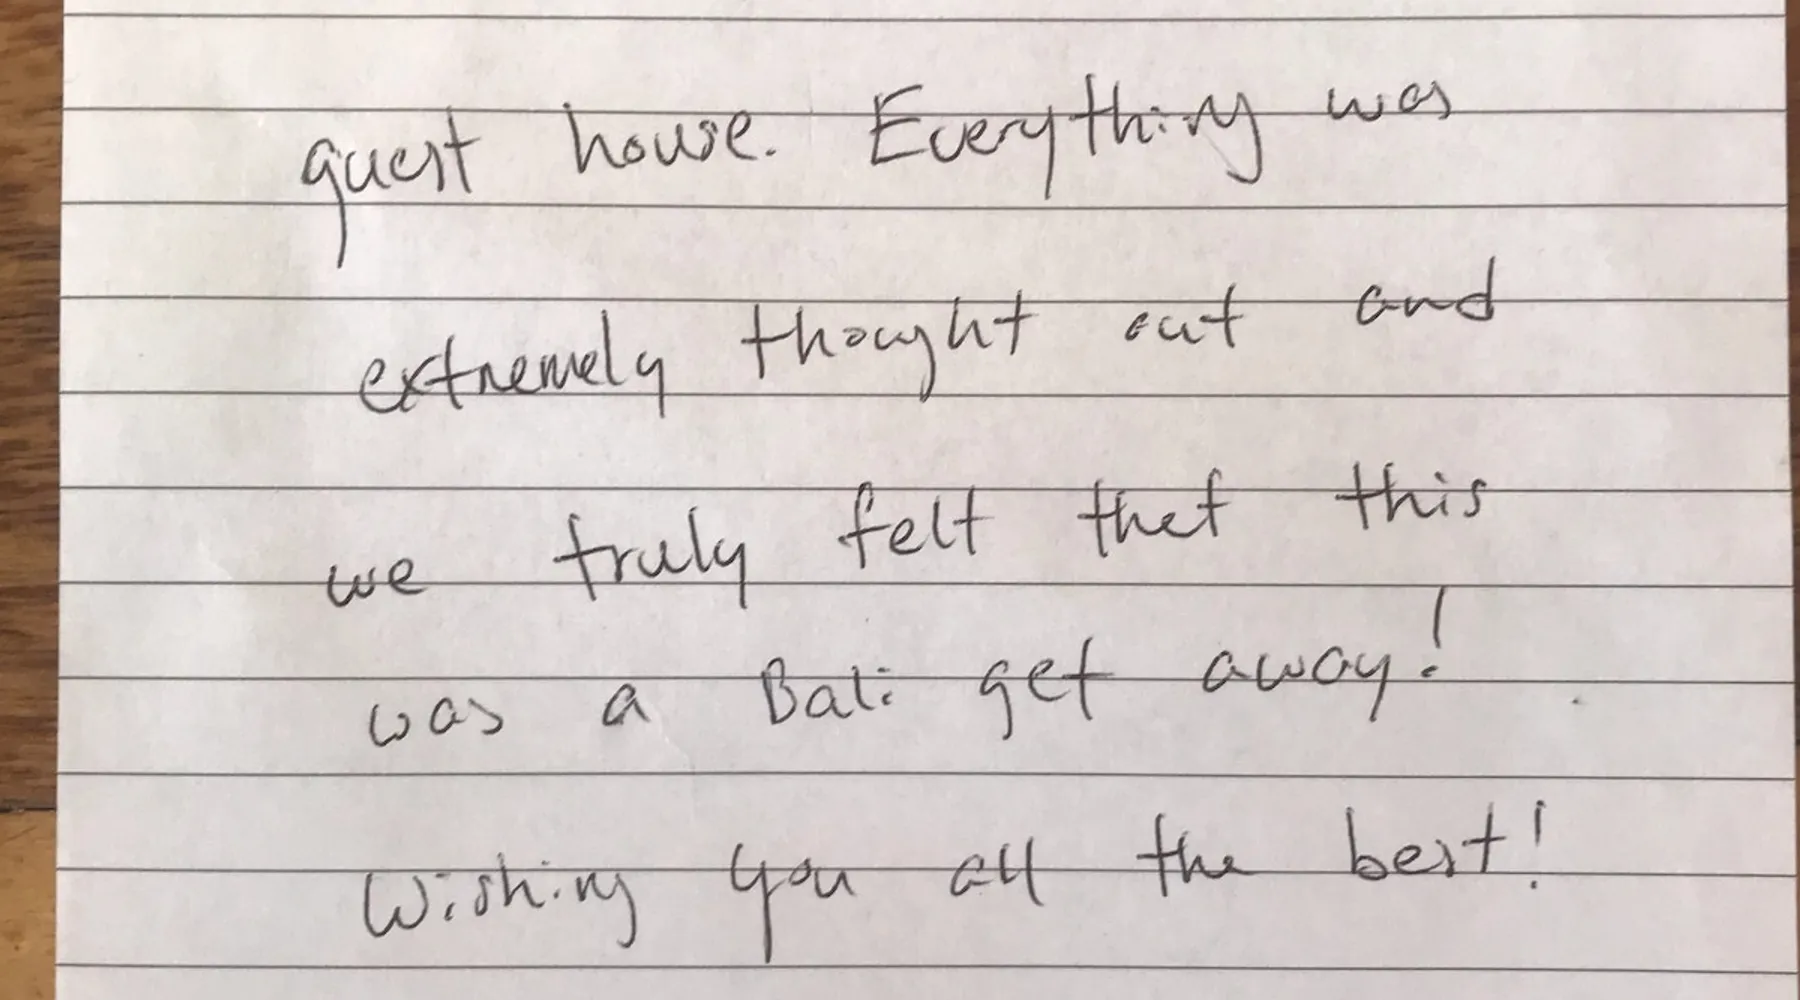 guest house. Everything was
extremely thought out and
we truly felt that this
was a Bali get away!
Wishing you all the best!